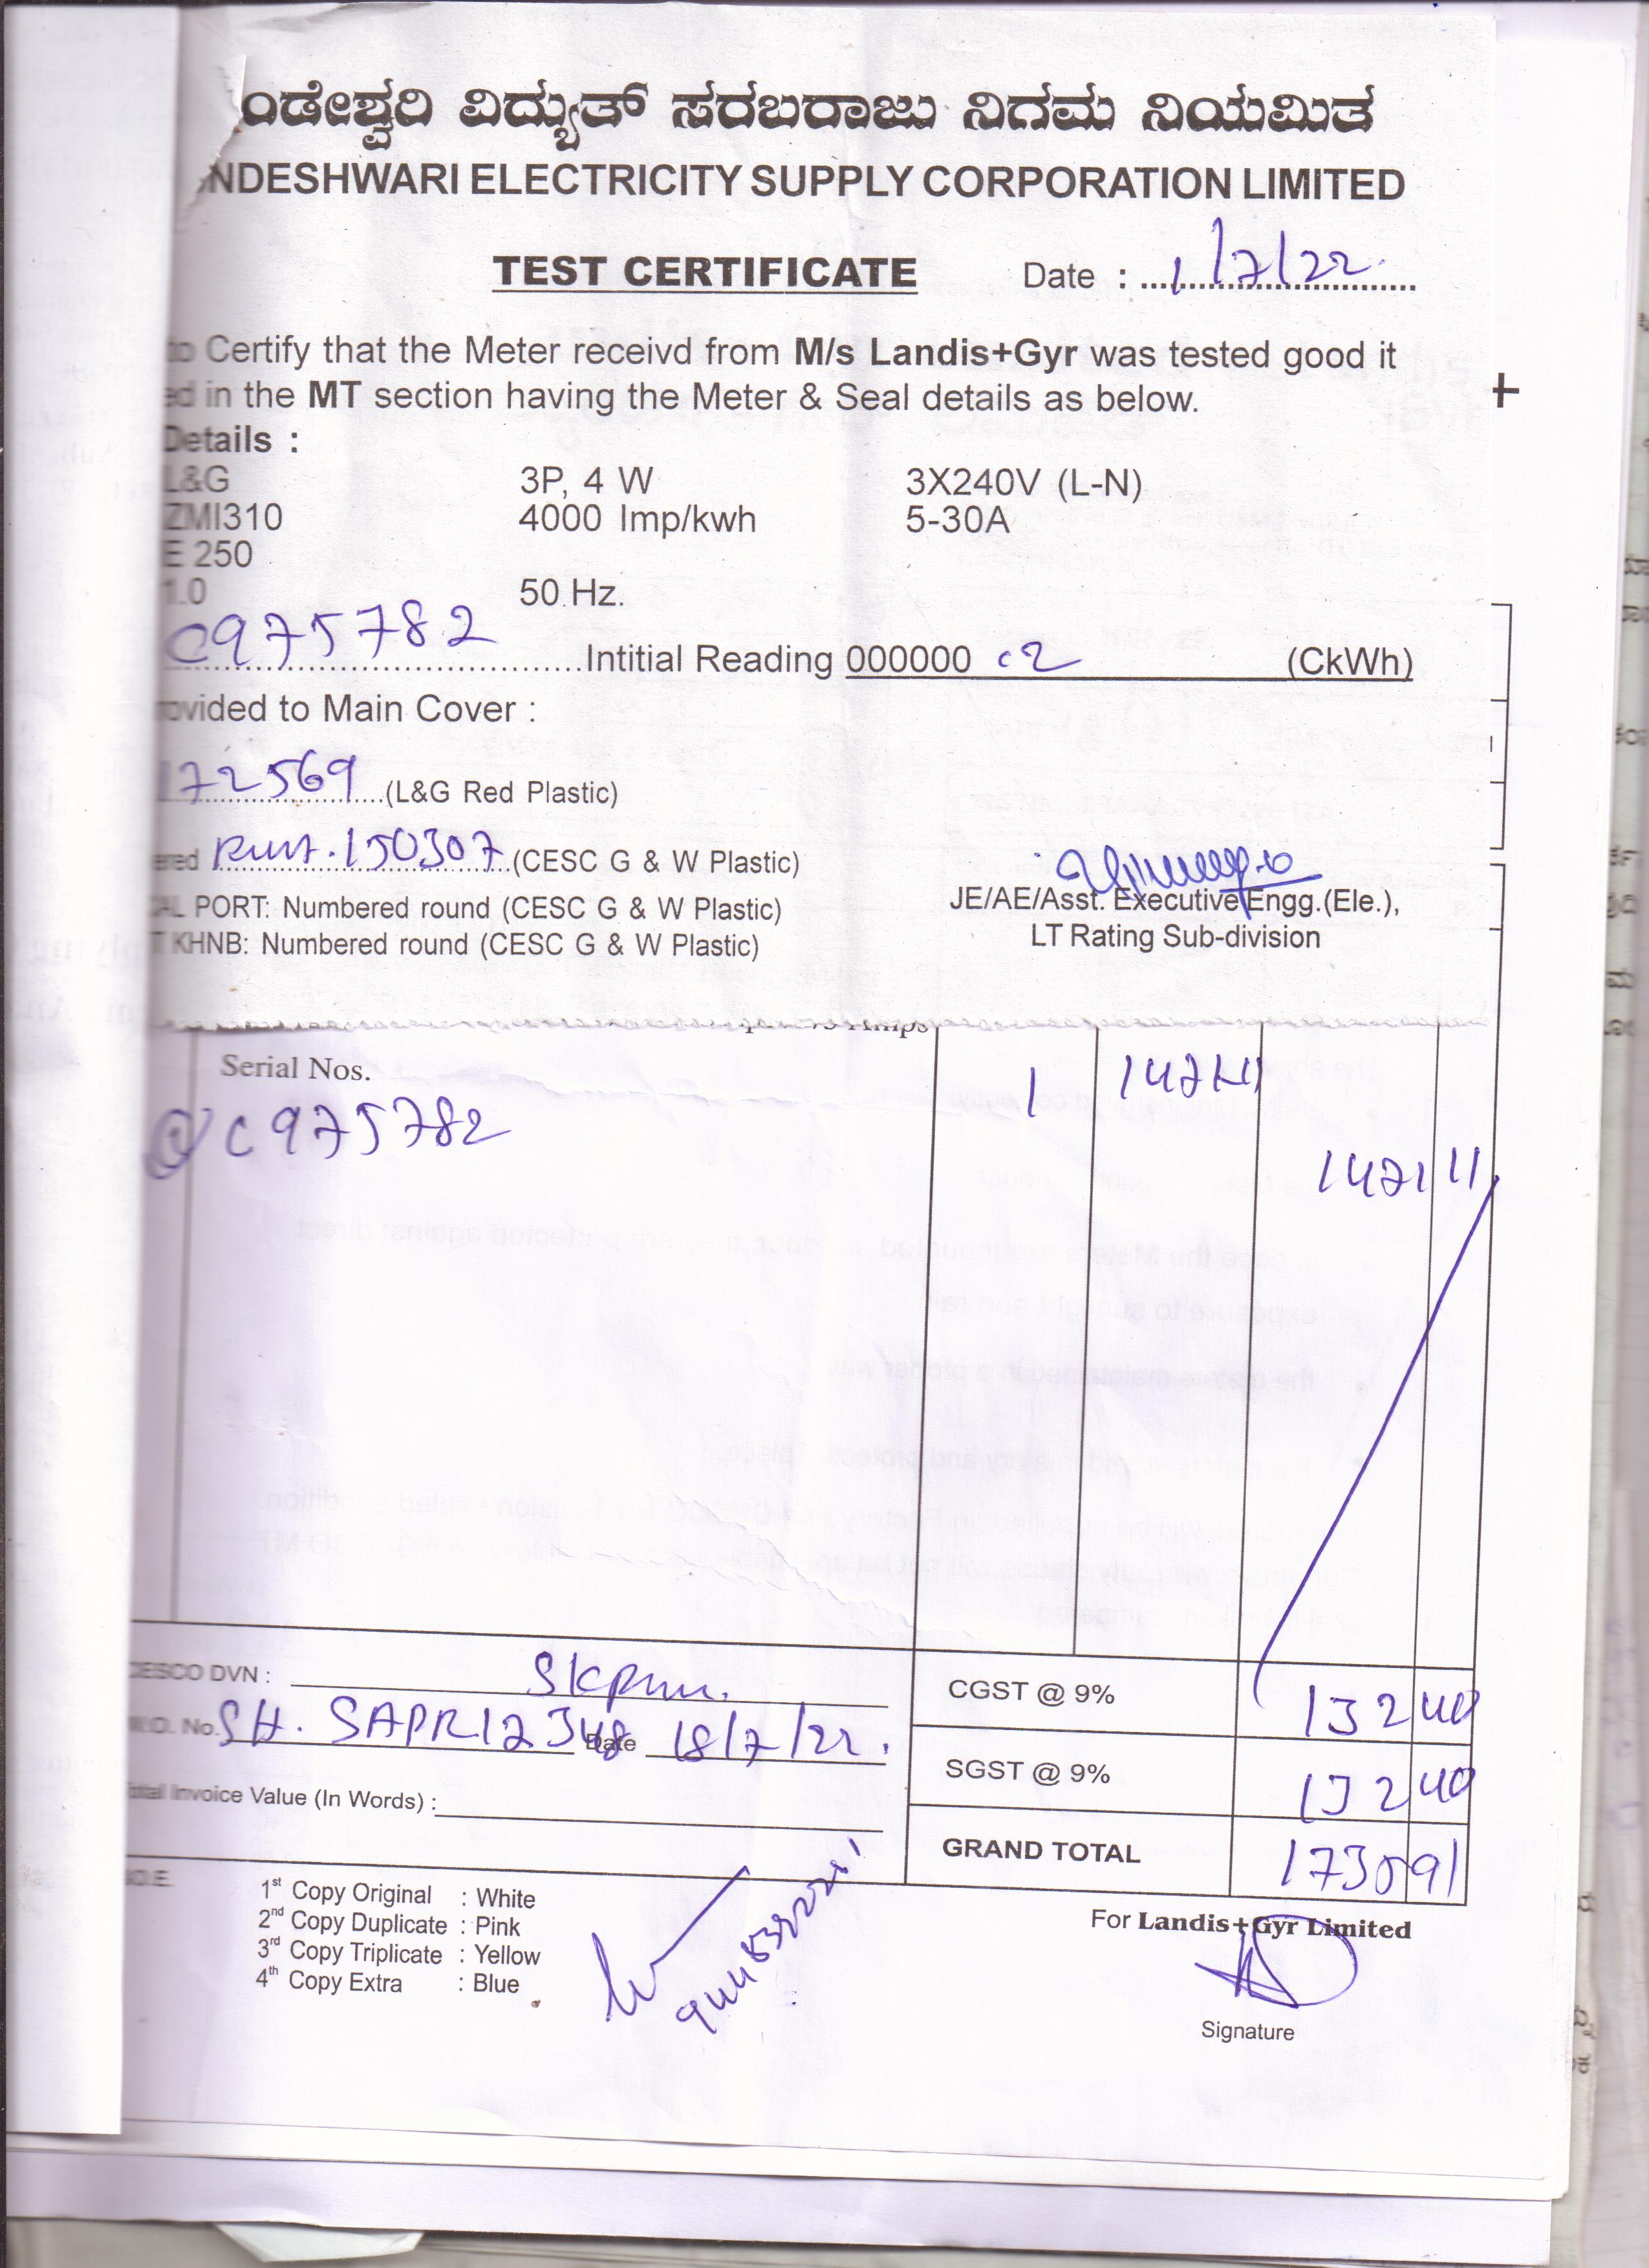 ಂಡೇಶ್ವರಿ ವಿದ್ಯುತ್ ಸರಬರಾಜು ನಿಗಮ ನಿಯಮಿತ
NDESHWARI ELECTRICITY SUPPLY CORPORATION LIMITED
TEST CERTIFICATE Date : 1/7/22
to Certify that the Meter receivd from M/s Landis+Gyr was tested good it
ed in the MT section having the Meter & Seal details as below.
Details :
L&G 3P, 4 W 3X240V (L-N)
ZMI310 4000 Imp/kwh 5-30A
E 250
1.0 50 Hz.
C975782 Intitial Reading 000000 02 (CkWh)
ovided to Main Cover :
172569 (L&G Red Plastic)
ered 150307 (CESC G & W Plastic)
AL PORT: Numbered round (CESC G & W Plastic)
JE/AE/Asst. Executive Engg.(Ele.),
T KHNB: Numbered round (CESC G & W Plastic)
LT Rating Sub-division
Serial Nos. 1
C975782 1471 11
CESCO DVN : CGST @ 9% 132 40
W.O. No. SH. SAPR12348 Date 18/7/22.
SGST @ 9% 132 40
Total Invoice Value (In Words) :
GRAND TOTAL 1735 91
1st Copy Original : White
2nd Copy Duplicate : Pink
3rd Copy Triplicate : Yellow
4th Copy Extra : Blue
For Landis+Gyr Limited
Signature